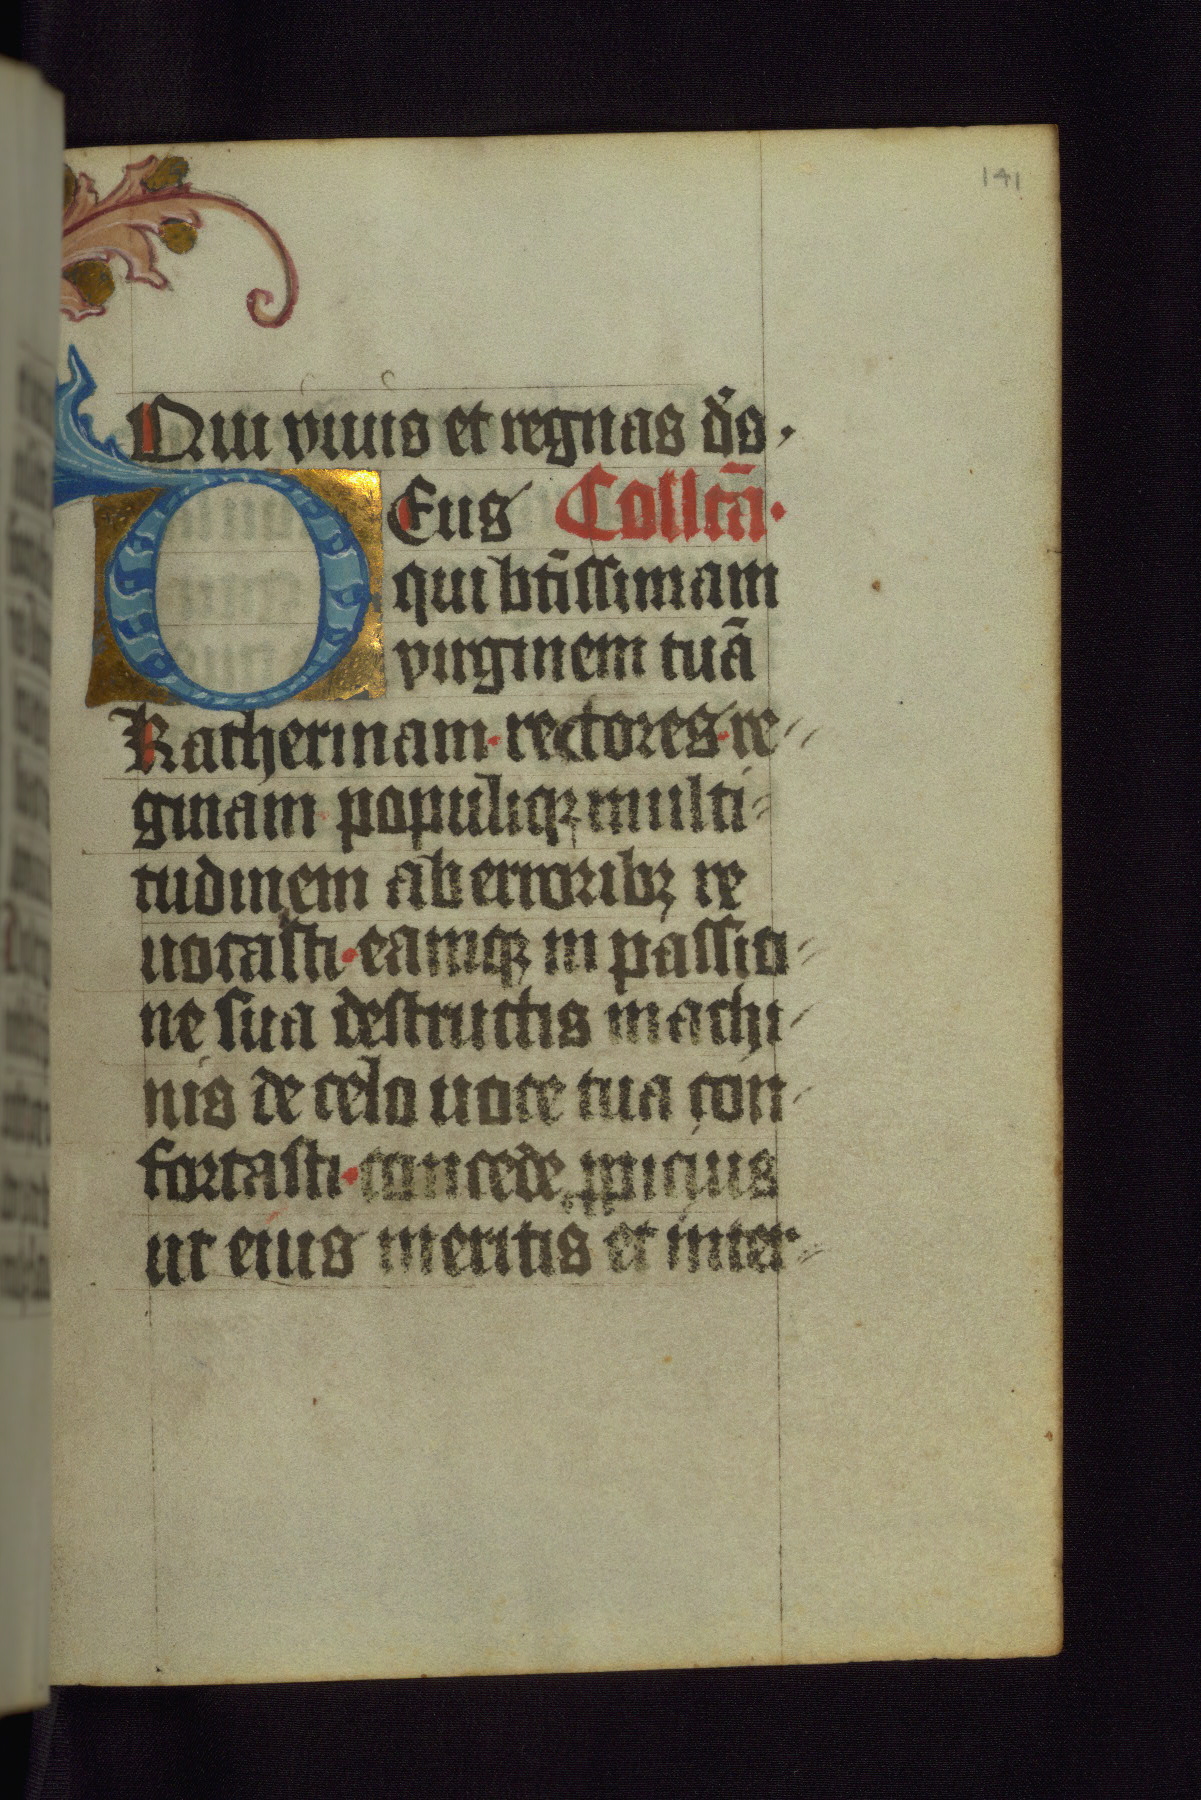 141
Qui viuis et regnas ds̄.
DEus Collcā.
qui btīssimam
virginem tuā
Katherinam· rectores· re⸗
ginam populiqꝫ multi⸗
tudinem ab erroribꝫ re
uocasti· eamqꝫ in passio⸗
ne sua destructis machi⸗
nis de celo uoce tua con⸗
fortasti· concede ꝓpicius
ut eius meritis et inter⸗